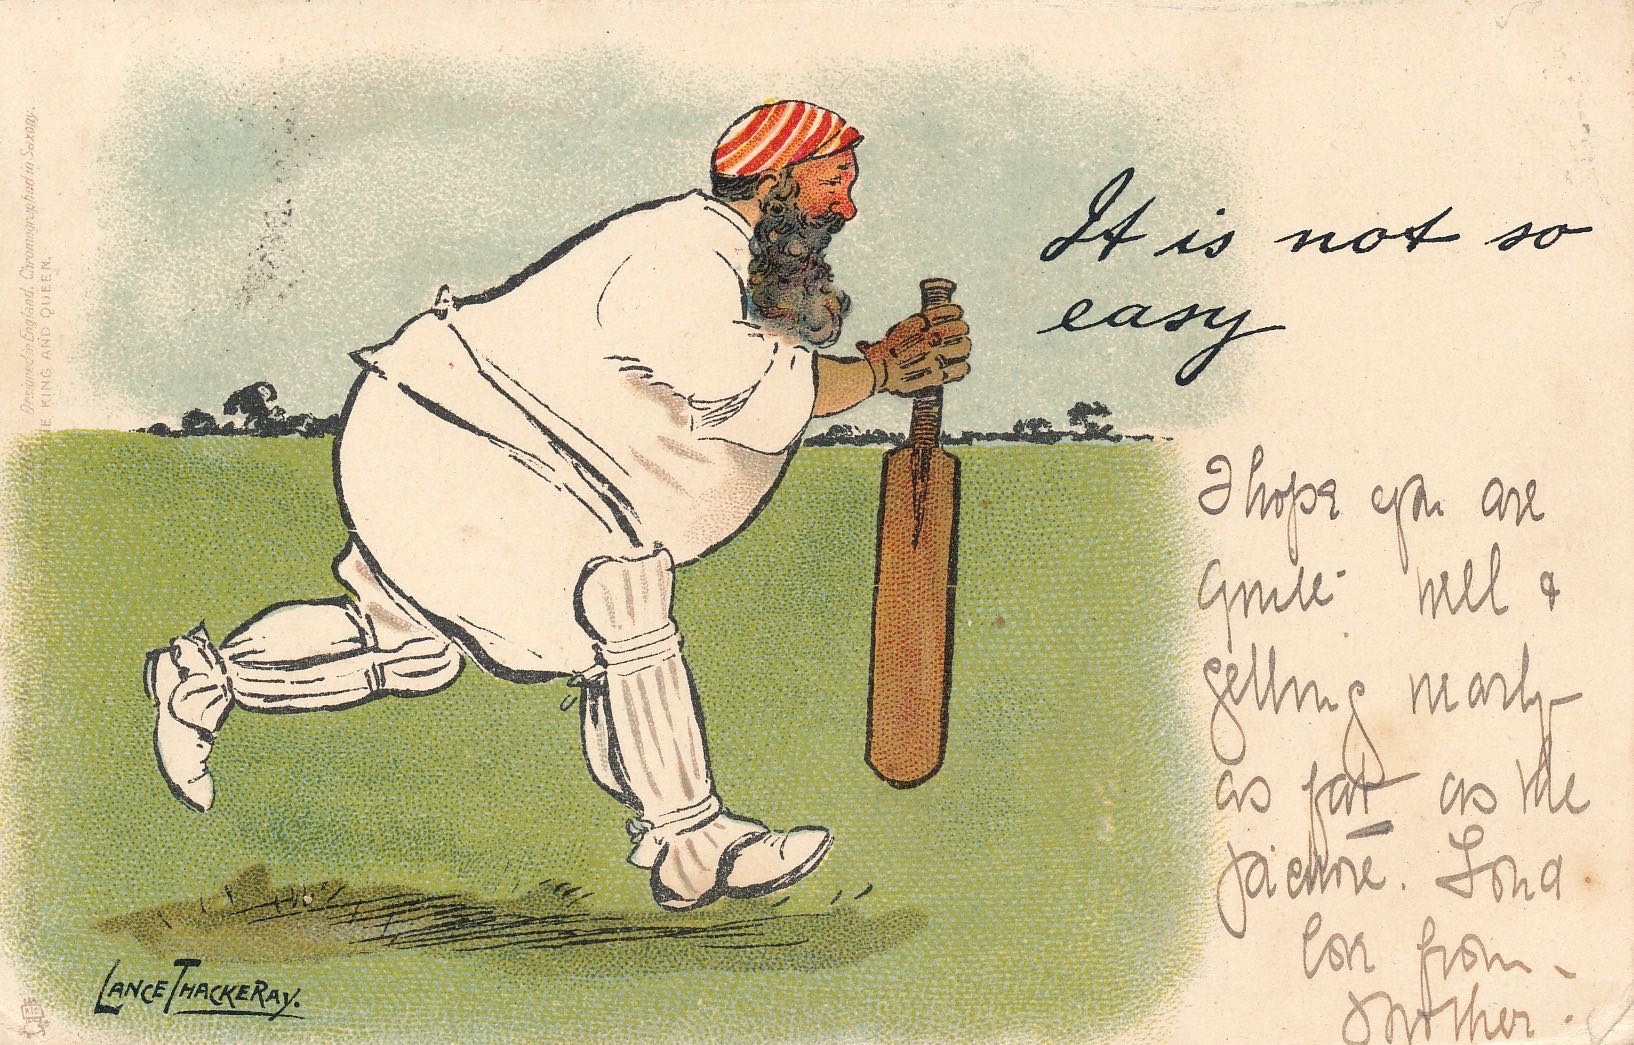 It is not so
easy
I hope you are
quite well &
getting nearly
as fat as the
picture. Fond
love from
Mother.
LANCE THACKERAY.
Designed in England, Chromographed in Saxony.
KING AND QUEEN.